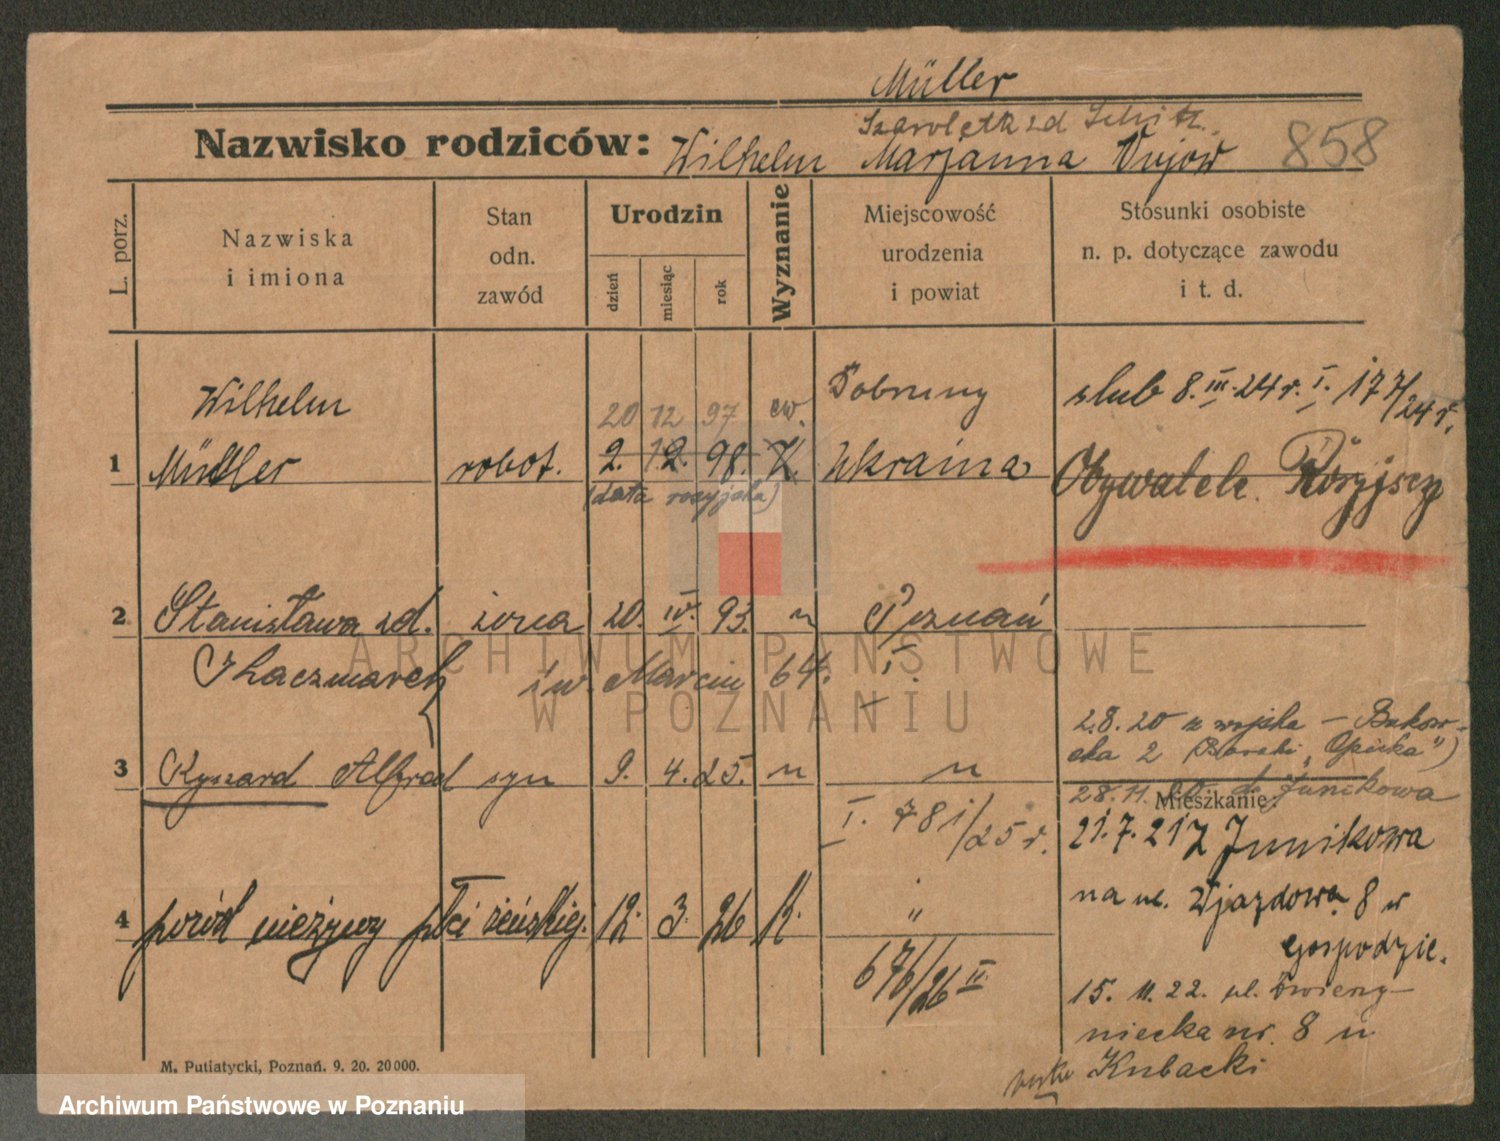 Müller
Nazwisko rodziców: Wilhelm Marjanna
858
L. porz.
Nazwiska
i imiona
Stan
odn.
zawód
Urodzin
dzień
miesiąc
rok
Wyznanie
Miejscowość
urodzenia
i powiat
Stosunki osobiste
n. p. dotyczące zawodu
i t. d.
Wilhelm
20 12 97 ew.
ślub 8. III. 24 r. I. 177/24 r.
1 Müller robot. 2. 12. 98. K. Ukraina
(data rosyjska)
Obywatele Rosyjscy
2 Stanisława zd. żona 20. IV. 93. " Poznań
Kaczmarek św. Marcin 64. I.
2.8.20 z wojska – Bukow-
ska 2 (Baraki „Opieka")
3 Ryszard Alfred syn 9. 4. 25. " "
28.11. do Junikowa
Mieszkanie:
I. 781/25 r.
21.7.21 z Junikowa
4 poród nieżywy płci żeńskiej. 12. 3. 26 K. "
na ul. Wjazdowa 8 w
gospodzie.
676/26 II
15. 11. 22. ul.
niecka nr. 8 u
Kubacki
M. Putiatycki, Poznań. 9. 20. 20000.
ARCHIWUM PAŃSTWOWE
W POZNANIU
Archiwum Państwowe w Poznaniu